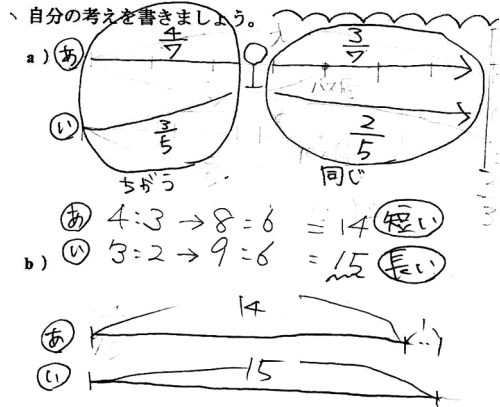 、自分の考えを書きましょう。
a） あ 4/7 3/7
バス
い 3/5 2/5
ちがう 同じ
あ 4:3 → 8:6 = 14 短い
b） い 3:2 → 9:6 = 15 長い
14
あ
い 15